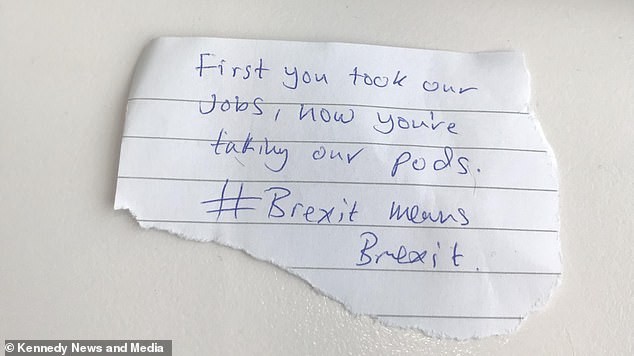 First you took our
Jobs, now you're
taking our pods.
#Brexit means
Brexit.
© Kennedy News and Media